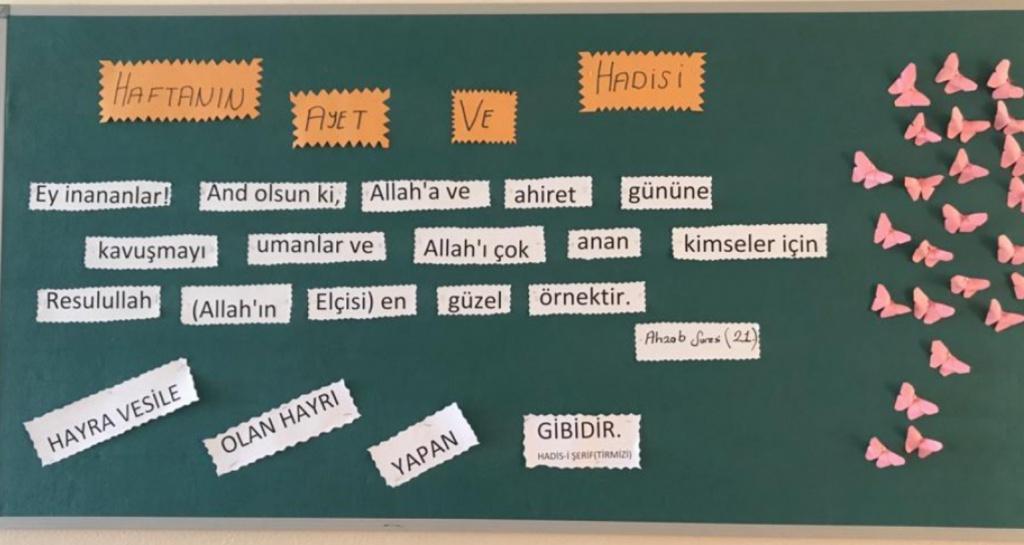 HAFTANIN AYET VE HADİSİ
Ey inananlar! And olsun ki, Allah'a ve ahiret gününe
kavuşmayı umanlar ve Allah'ı çok anan kimseler için
Resulullah (Allah'ın Elçisi) en güzel örnektir.
Ahzab Suresi (21)
HAYRA VESİLE OLAN HAYRI YAPAN GİBİDİR.
HADİS-İ ŞERİF(TİRMİZİ)